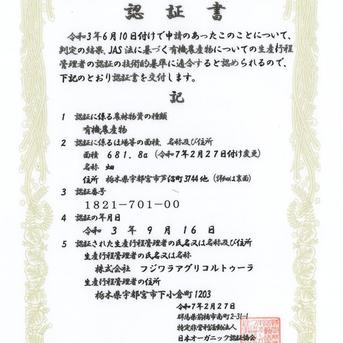 認証書
令和3年6月10日付けで申請のあったこのことについて、
判定の結果、JAS法に基づく有機農産物についての生産行程
管理者の認証の技術的基準に適合すると認められるので、
下記のとおり認証書を交付します。
記
1 認証に係る農林物資の種類
有機農産物
2 認証に係るほ場等の面積、名称及び住所
面積 681.8a (令和7年2月27日付け変更)
名称 畑
住所 栃木県宇都宮市芦沼町3744他 (詳細は裏面)
3 認証番号
1821-701-00
4 認証の年月日
令和 3年 9月 16日
5 認証された生産行程管理者の氏名又は名称及び住所
生産行程管理者の氏名又は名称
株式会社 フジワラアグリコルトゥーラ
生産行程管理者の住所
栃木県宇都宮市下小倉町1203
令和7年2月27日
群馬県前橋市南町2-31-1
特定非営利活動法人
日本オーガニック認証協会